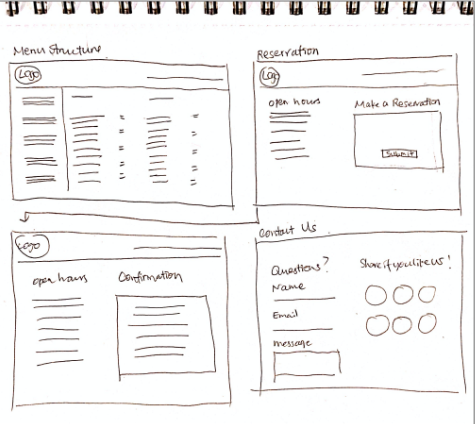 Menu Structure
Logo
Reservation
Logo
open hours
Make a Reservation
Submit
Logo
open hours
Confirmation
Contact Us
Questions?
Name
Email
message
Share if you like us!